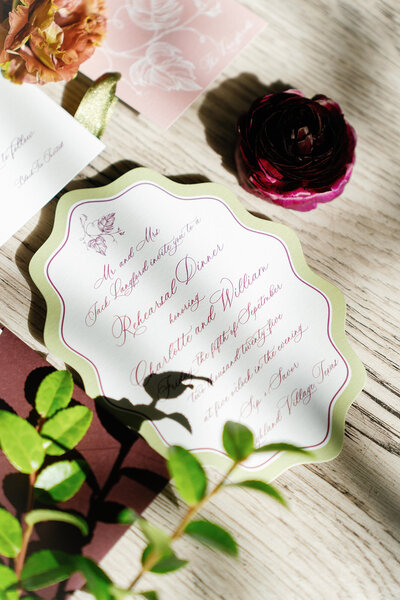 to follow
Black Tie
Mr. and Mrs.
Jack Langford invite you to a
Rehearsal Dinner
honoring
Charlotte and William
Friday, the fifth of September
two thousand twenty-five
at five o'clock in the evening
Sip & Savor
Highland Village Texas